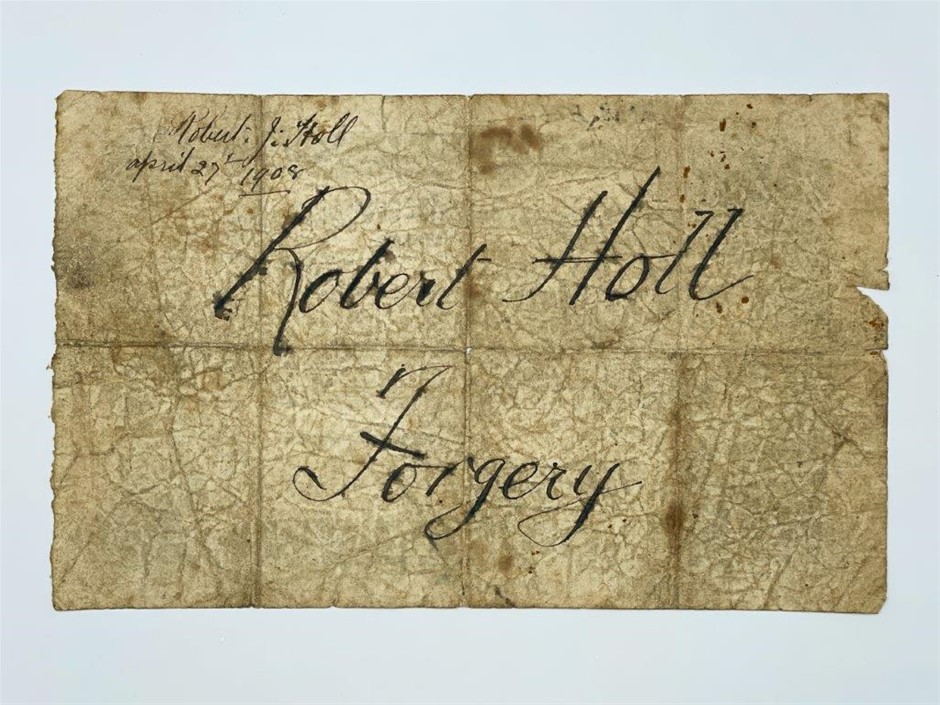 Robert. J. Holl
april 27th 1908
Robert Holl
Forgery